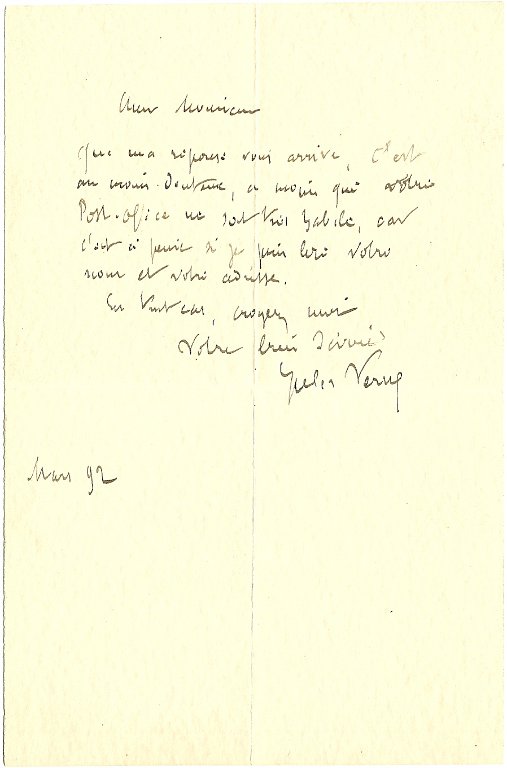 Cher Monsieur
Que ma réponse vous arrive, c'est
au moins douteux, à moins que votre
Post-office ne soit très habile, car
c'est à peine si je puis lire votre
nom et votre adresse.
En tout cas, croyez-moi
Votre bien dévoué
Jules Verne
Mars 92